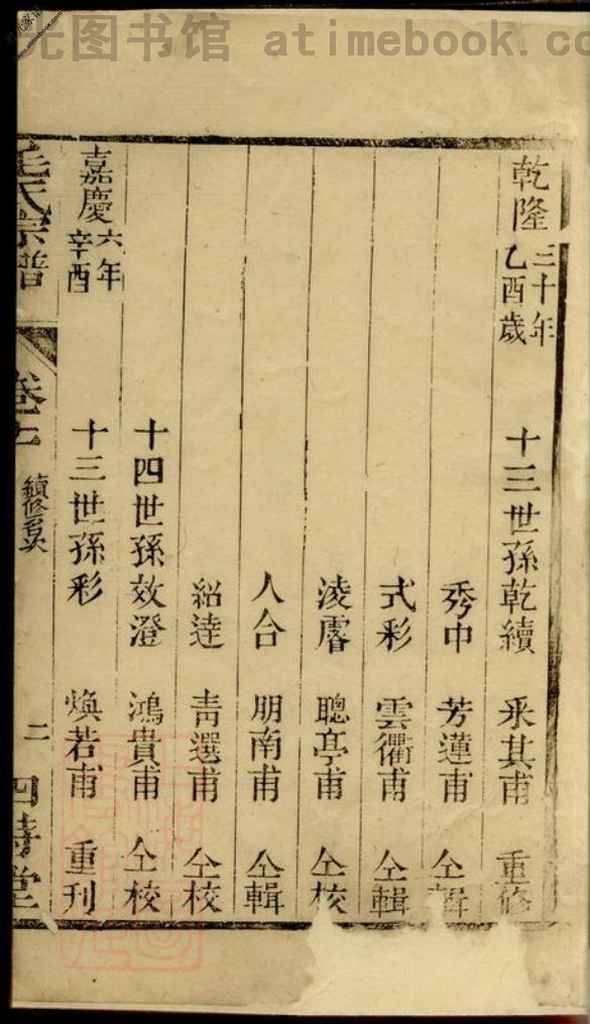 光图书馆 atimebook.co
乾隆三十年乙酉歲 十三世孫乾續 采其甫 重修
秀中 芳蓮甫 仝輯
式彩 雲衢甫 仝輯
淩霨 聰亭甫 仝校
人台 朋南甫 仝輯
紹逵 靑選甫 仝校
十四世孫效澄 鴻貴甫 仝校
嘉慶六年辛酉 十三世孫彩 煥若甫 重刊
氏宗譜 卷七 續修名次 二 四詩堂